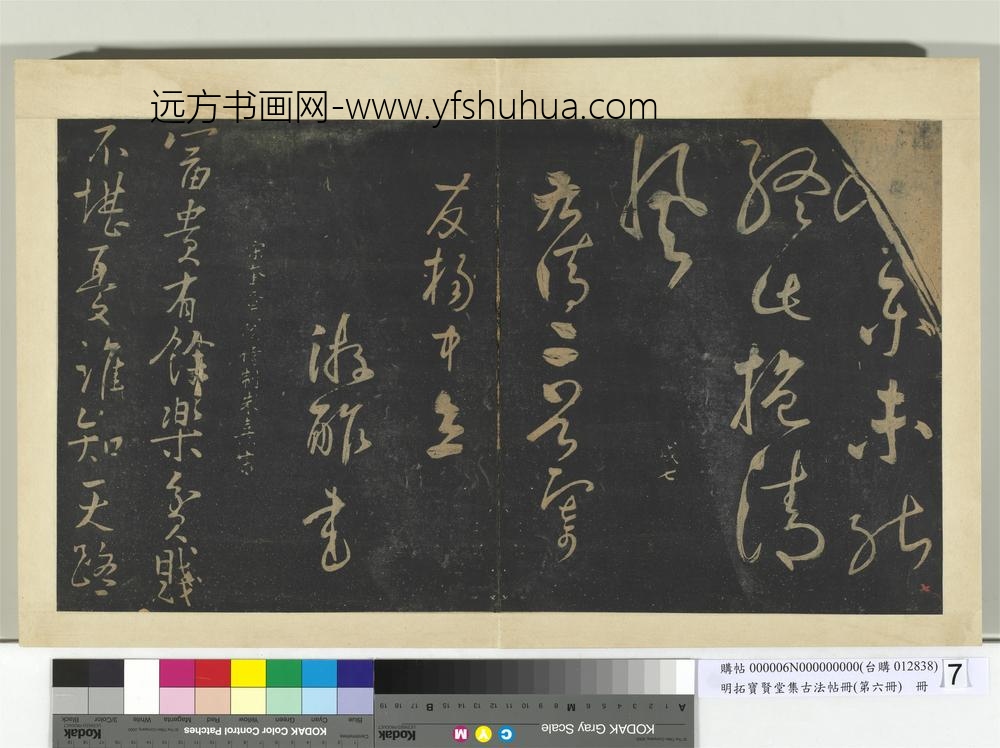 远方书画网-www.yfshuhua.com
未能
終此挹清
風
二首寄
友楊中立
游酢書
宋
待制朱熹
富貴有餘樂貧賤
不堪憂誰知天路
購帖 000006N000000000(台購 012838)
明拓寶賢堂集古法帖冊(第六冊) 冊
7
Blue Cyan Green Yellow Red Magenta White 3/Color Black
KODAK Color Control Patches
Kodak
A 1 2 3 4 5 6 M 8 9 10 11 12 13 14 15 B 17 18 19
KODAK Gray Scale
C Y M
Kodak